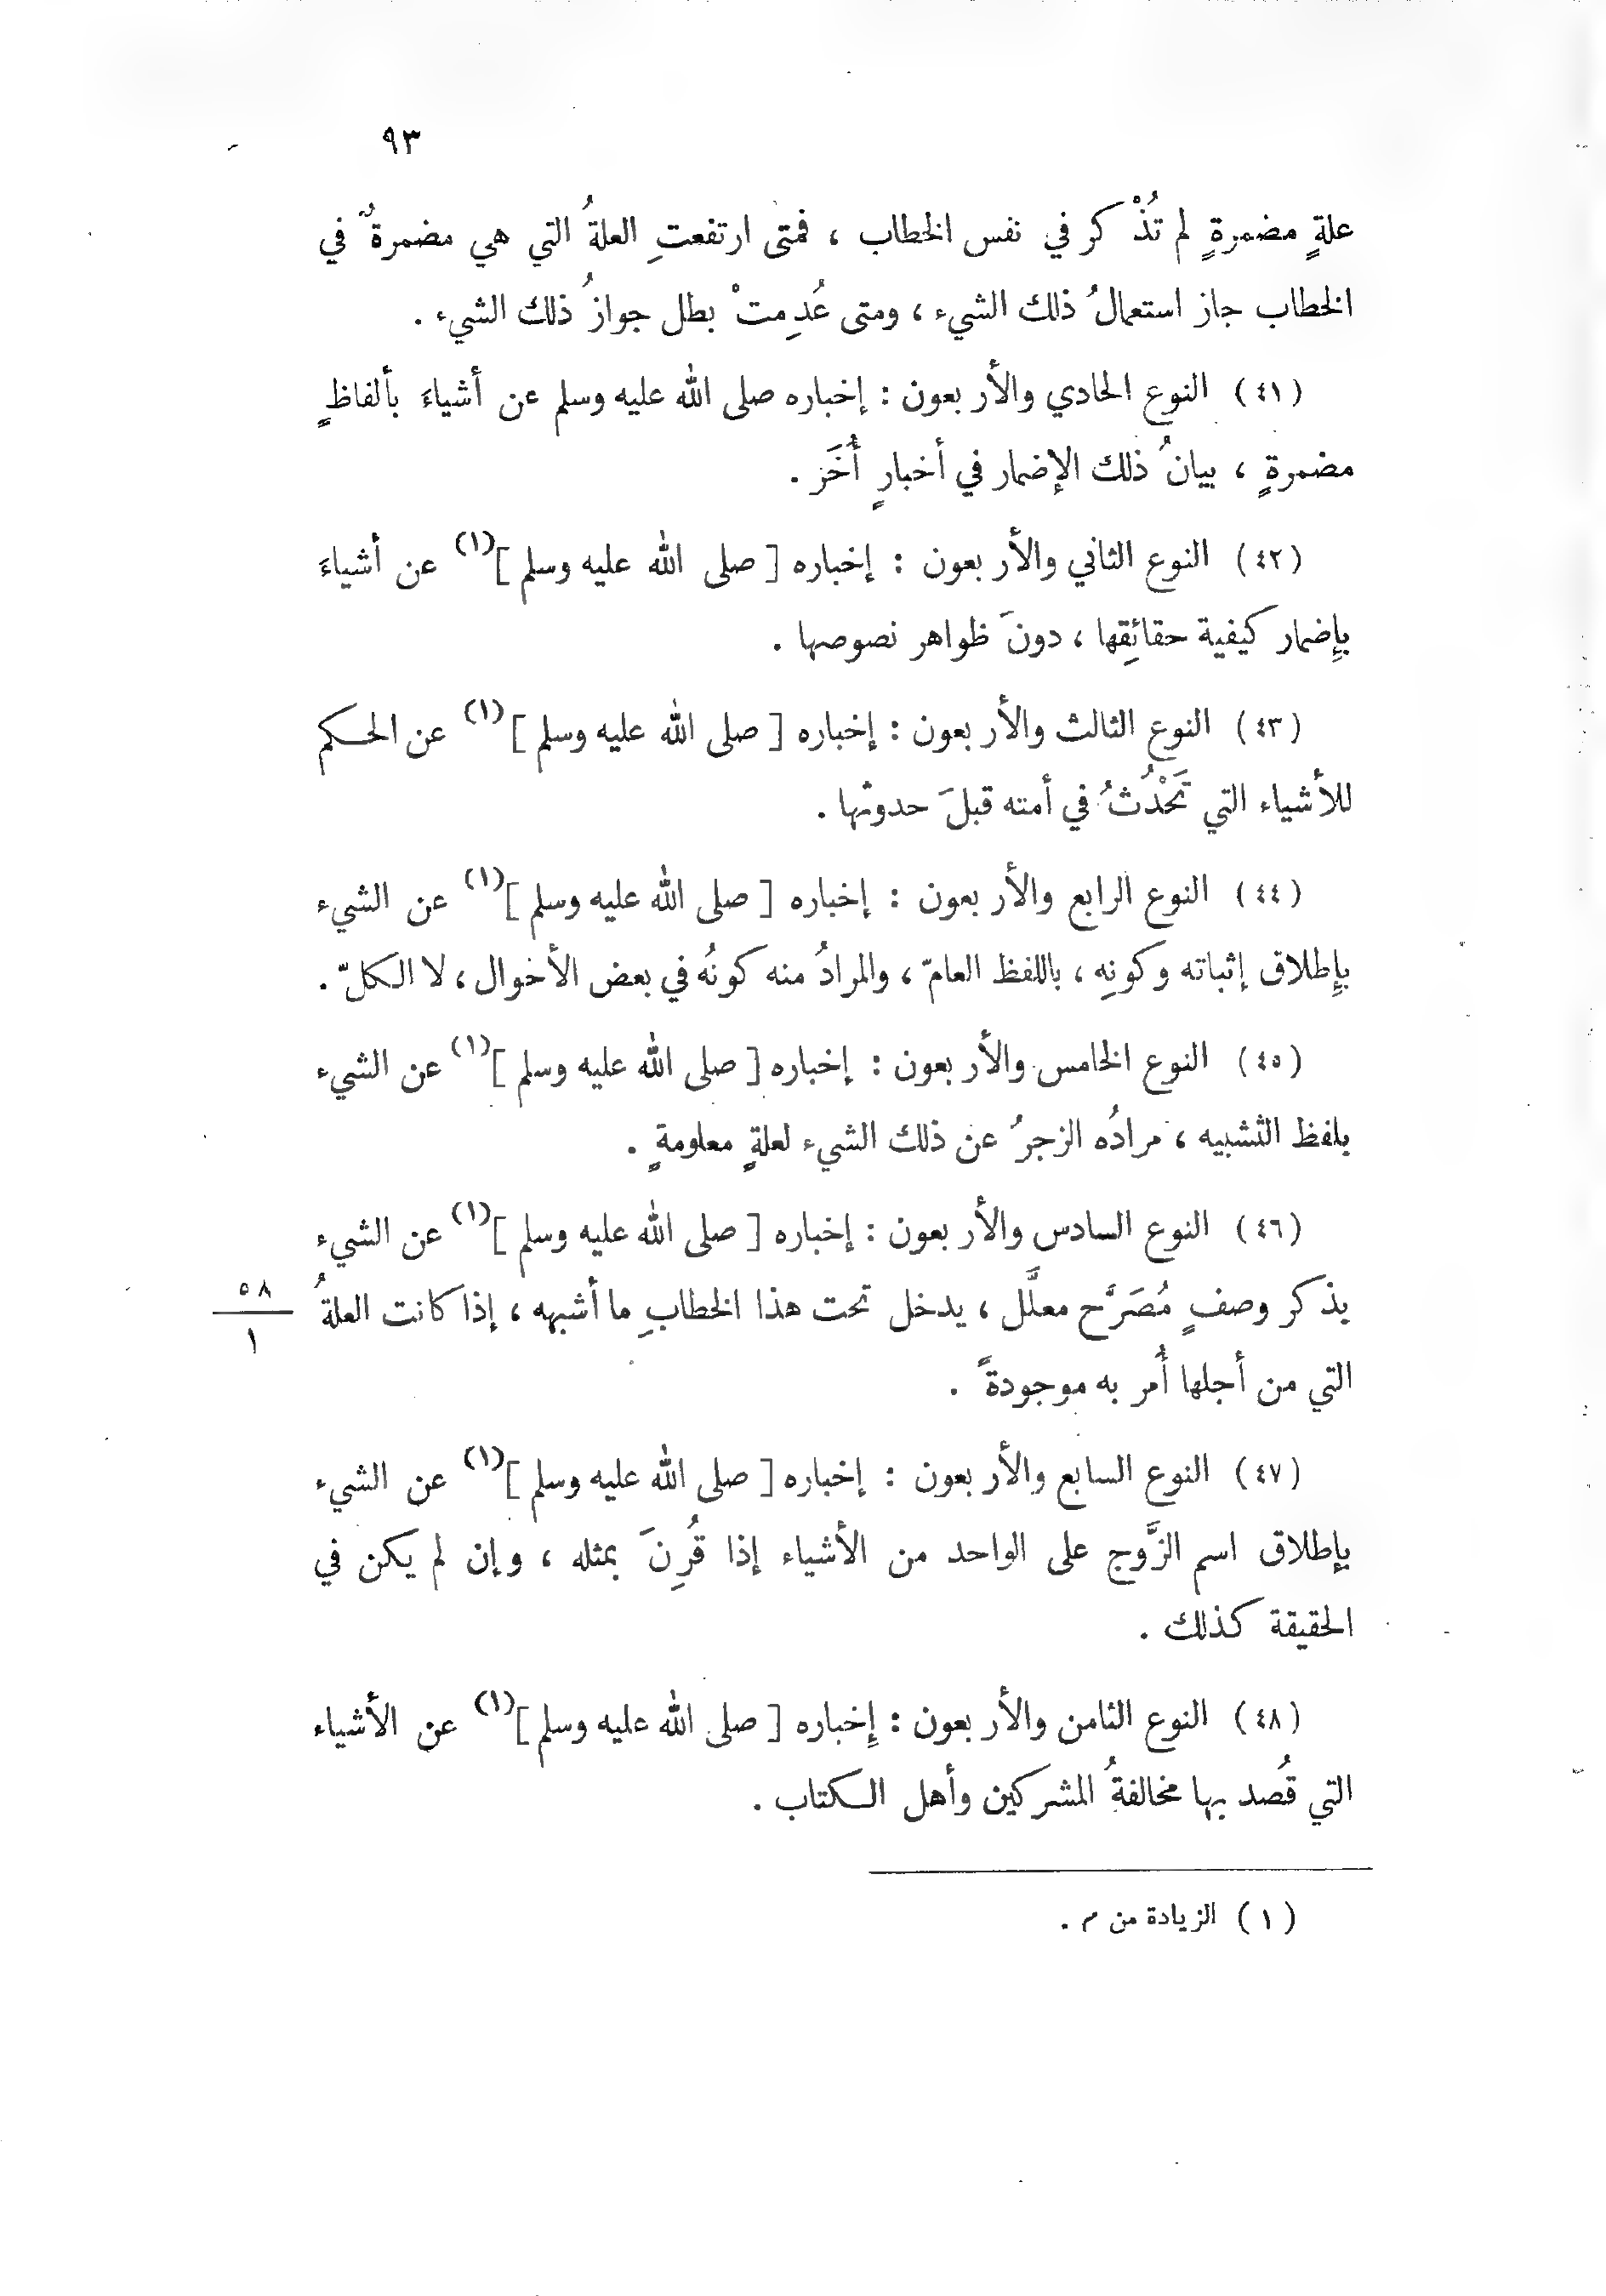 ٩٣
علةٍ مضمرةٍ لم تُذْكر في نفس الخطاب ، فمتى ارتفعتِ العلةُ التي هي مضمرةٌ في
الخطاب جاز استعمالُ ذلك الشيء ، ومتى عُدِمتْ بطل جوازُ ذلك الشيء .
(٤١) النوع الحادي والأربعون : إخباره صلى الله عليه وسلم عن أشياءَ بألفاظٍ
مضمرةٍ ، بيانُ ذلك الإضمار في أخبارٍ أُخَر .
(٤٢) النوع الثاني والأربعون : إخباره [ صلى الله عليه وسلم ](١) عن أشياءَ
بإِضمار كيفية حقائِقها ، دونَ ظواهر نصوصها .
(٤٣) النوع الثالث والأربعون : إخباره [ صلى الله عليه وسلم ](١) عن الحكم
للأشياء التي تَحْدُثُ في أمته قبلَ حدوثها .
(٤٤) النوع الرابع والأربعون : إخباره [ صلى الله عليه وسلم ](١) عن الشيء
بإِطلاق إثباته وكونِه ، باللفظ العامّ ، والمرادُ منه كونُه في بعض الأحوال ، لا الكلّ .
(٤٥) النوع الخامس والأربعون : إخباره [ صلى الله عليه وسلم ](١) عن الشيء
بلفظ التشبيه ، مرادُه الزجرُ عن ذلك الشيء لعلةٍ معلومةٍ .
(٤٦) النوع السادس والأربعون : إخباره [ صلى الله عليه وسلم ](١) عن الشيء
بذكر وصفٍ مُصَرَّح معلَّل ، يدخل تحت هذا الخطابِ ما أشبهه ، إذا كانت العلةُ
٥٨
١
التي من أجلها أُمر به موجودةً .
(٤٧) النوع السابع والأربعون : إخباره [ صلى الله عليه وسلم ](١) عن الشيء
بإطلاق اسم الزَّوج على الواحد من الأشياء إذا قُرِنَ بمثله ، وإن لم يكن في
الحقيقة كذلك .
(٤٨) النوع الثامن والأربعون : إِخباره [ صلى الله عليه وسلم ](١) عن الأشياء
التي قُصد بها مخالفةُ المشركين وأهل الكتاب .
(١) الزيادة من م .